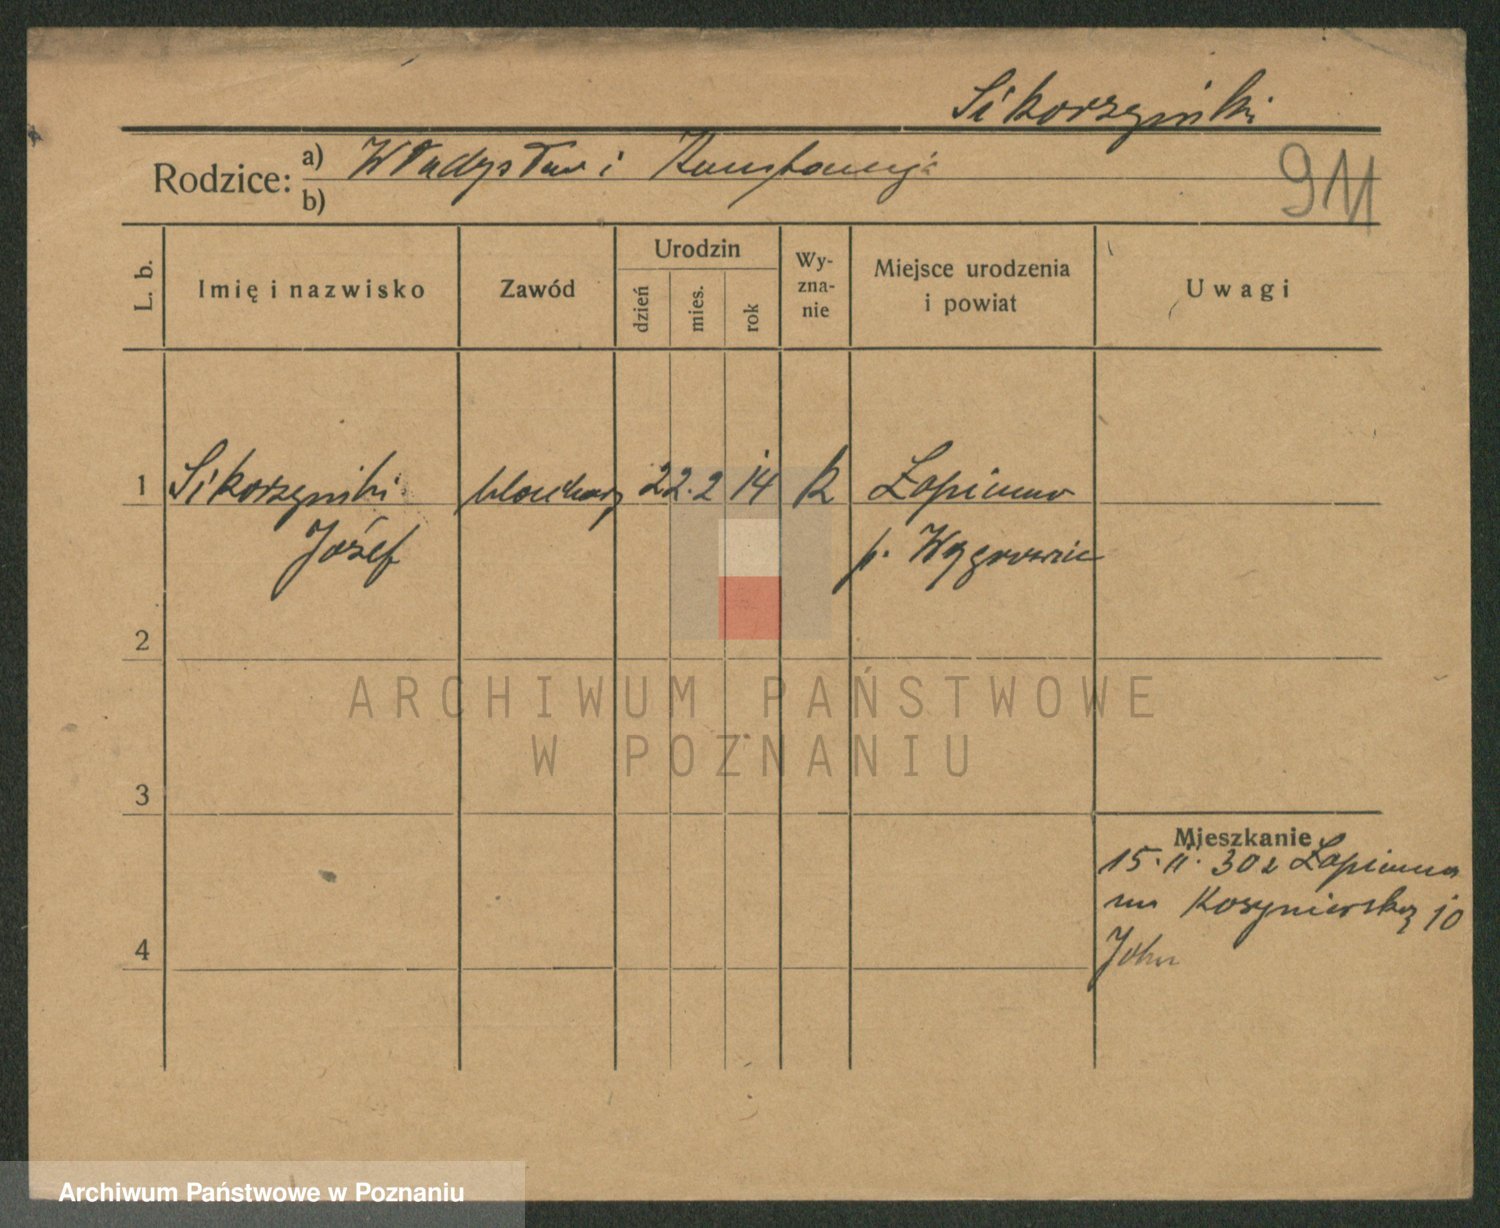 Sikorzyński
Rodzice: a) Władysław i Konstancja
b)
911
L. b.
Imię i nazwisko
Zawód
Urodzin
dzień
mies.
rok
Wy-
zna-
nie
Miejsce urodzenia
i powiat
Uwagi
1 Sikorzyński blacharz 22. 2 14 k Łopienno
Józef p. Wągrowiec
2
ARCHIWUM PAŃSTWOWE
W POZNANIU
3
Mieszkanie
15. II. 30 z Łopienna
na 10
4
Archiwum Państwowe w Poznaniu